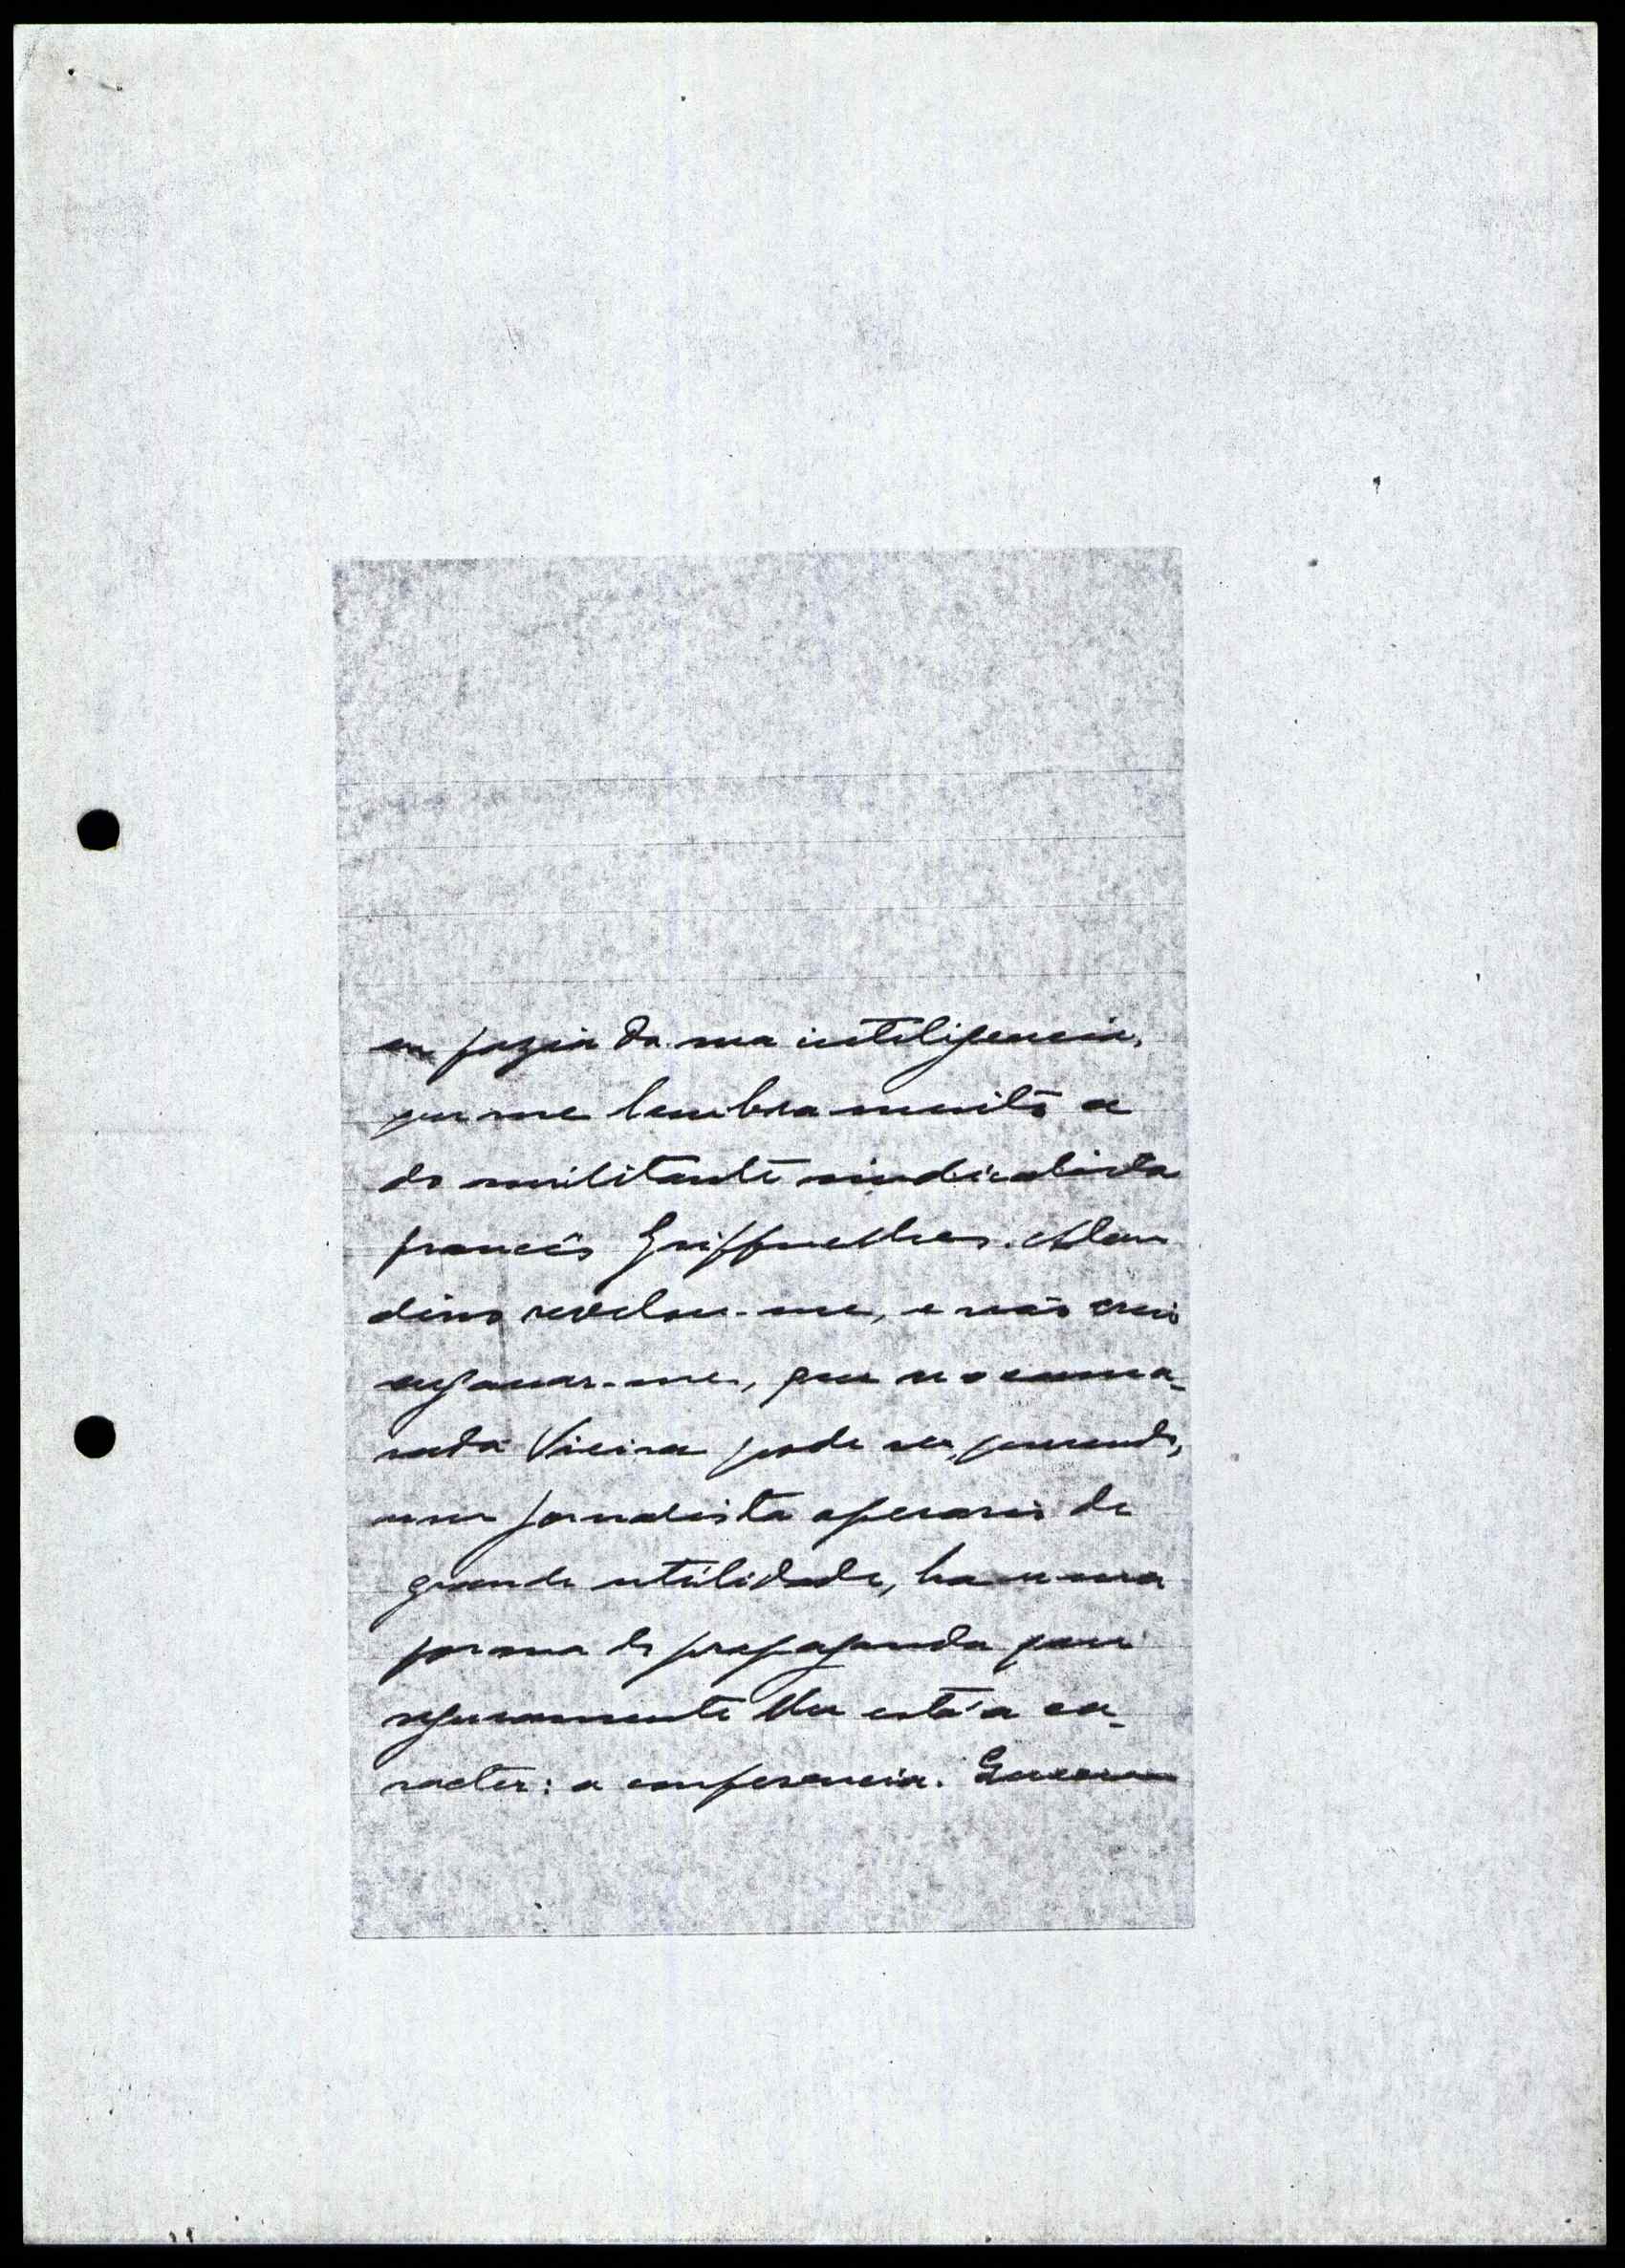 eu fazia da sua inteligencia,
que me lembra muito a
do militante sindicalista
francês Griffuelhes. Alan
dino revelou-me, e não creio
enganar-me, que se o cama-
rada Vieira pode ser, querendo,
um jornalista operario de
grande utilidade, ha uma
forma de propaganda que
seguramente lhe está a ca-
racter: a conferencia.